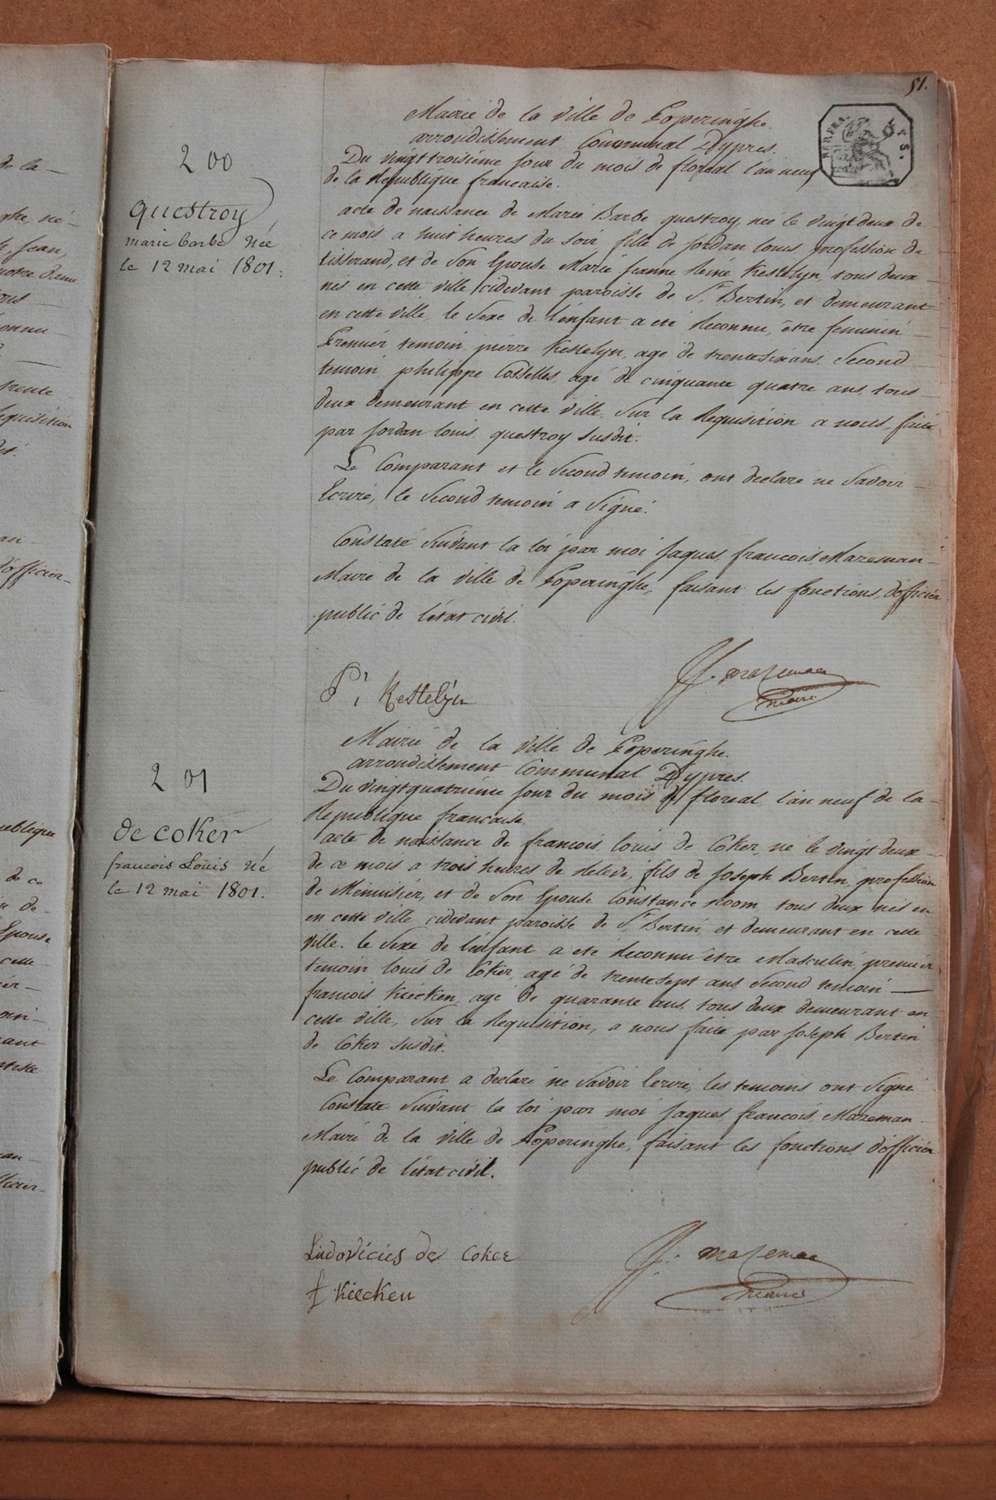 51.
200
Questroy
marie barbe née
le 12 mai 1801.
Mairie de la ville de Poperinghe
arrondissement Communal Dypres.
Du vingttroisieme jour du mois de floreal l'an neuf
de la Republique francaise.
acte de naissance de Marie Barbe questroy, née le vingt deux de
ce mois a huit heures du soir, fille de Jordan Louis, profession de
tisserand, et de Son Epouse Marie Jeanne Kestelyn, tous deux
nés en cette ville cidevant paroisse de St Bertin, et demeurant
en cette ville, le Sexe de l'enfant a eté Reconnu être femenin
Premier temoin pierre Kestelyn, agé de trentesix ans, Second
temoin philippe agé de cinquante quatre ans, tous
deux demeurant en cette ville, Sur la Requisition a nous faite
par Jordan louis questroy Susdit.
Le Comparant et le Second temoin, ont declaré ne Savoir
Ecrire, le Second temoin a Signé.
Constaté Suivant la loi par moi Jaques francois Mazeman
Maire de la ville de Poperinghe, faisant les fonctions d'officier
public de l'état civil.
Pr Kestelyn
J. f. mazeman
maire
201
de Coker
francois Louis né
le 12 mai 1801.
Mairie de la ville de Poperinghe.
arrondissement Communal Dypres.
Du vingtquatrieme jour du mois de floreal l'an neuf de la
Republique francaise
acte de naissance de francois louis de Coker, né le vingt deux
de ce mois a trois heures de relevé, fils de Joseph Bertin, profession
de Menusier, et de Son Epouse Constance Room, tous deux nés en
en cette ville, cidevant paroisse de St Bertin, et demeurant en cette
ville. le Sexe de l'enfant a eté Reconnu être Masculin, premier
temoin louis de Coker, agé de trentesept ans Second temoin
francois Kiecken, agé de quarante ans, tous deux demeurant en
cette ville, Sur la Requisition, a nous faite par Joseph Bertin
de Coker susdit.
Le Comparant a declaré ne Savoir Ecrire, les temoins ont Signé
Constaté Suivant la loi par moi Jaques francois Mazeman
Maire de la ville de Poperinghe, faisant les fonctions d'officier
public de l'état civil.
Ludovicus de Coker
f Kiecken
J. f. mazeman
maire